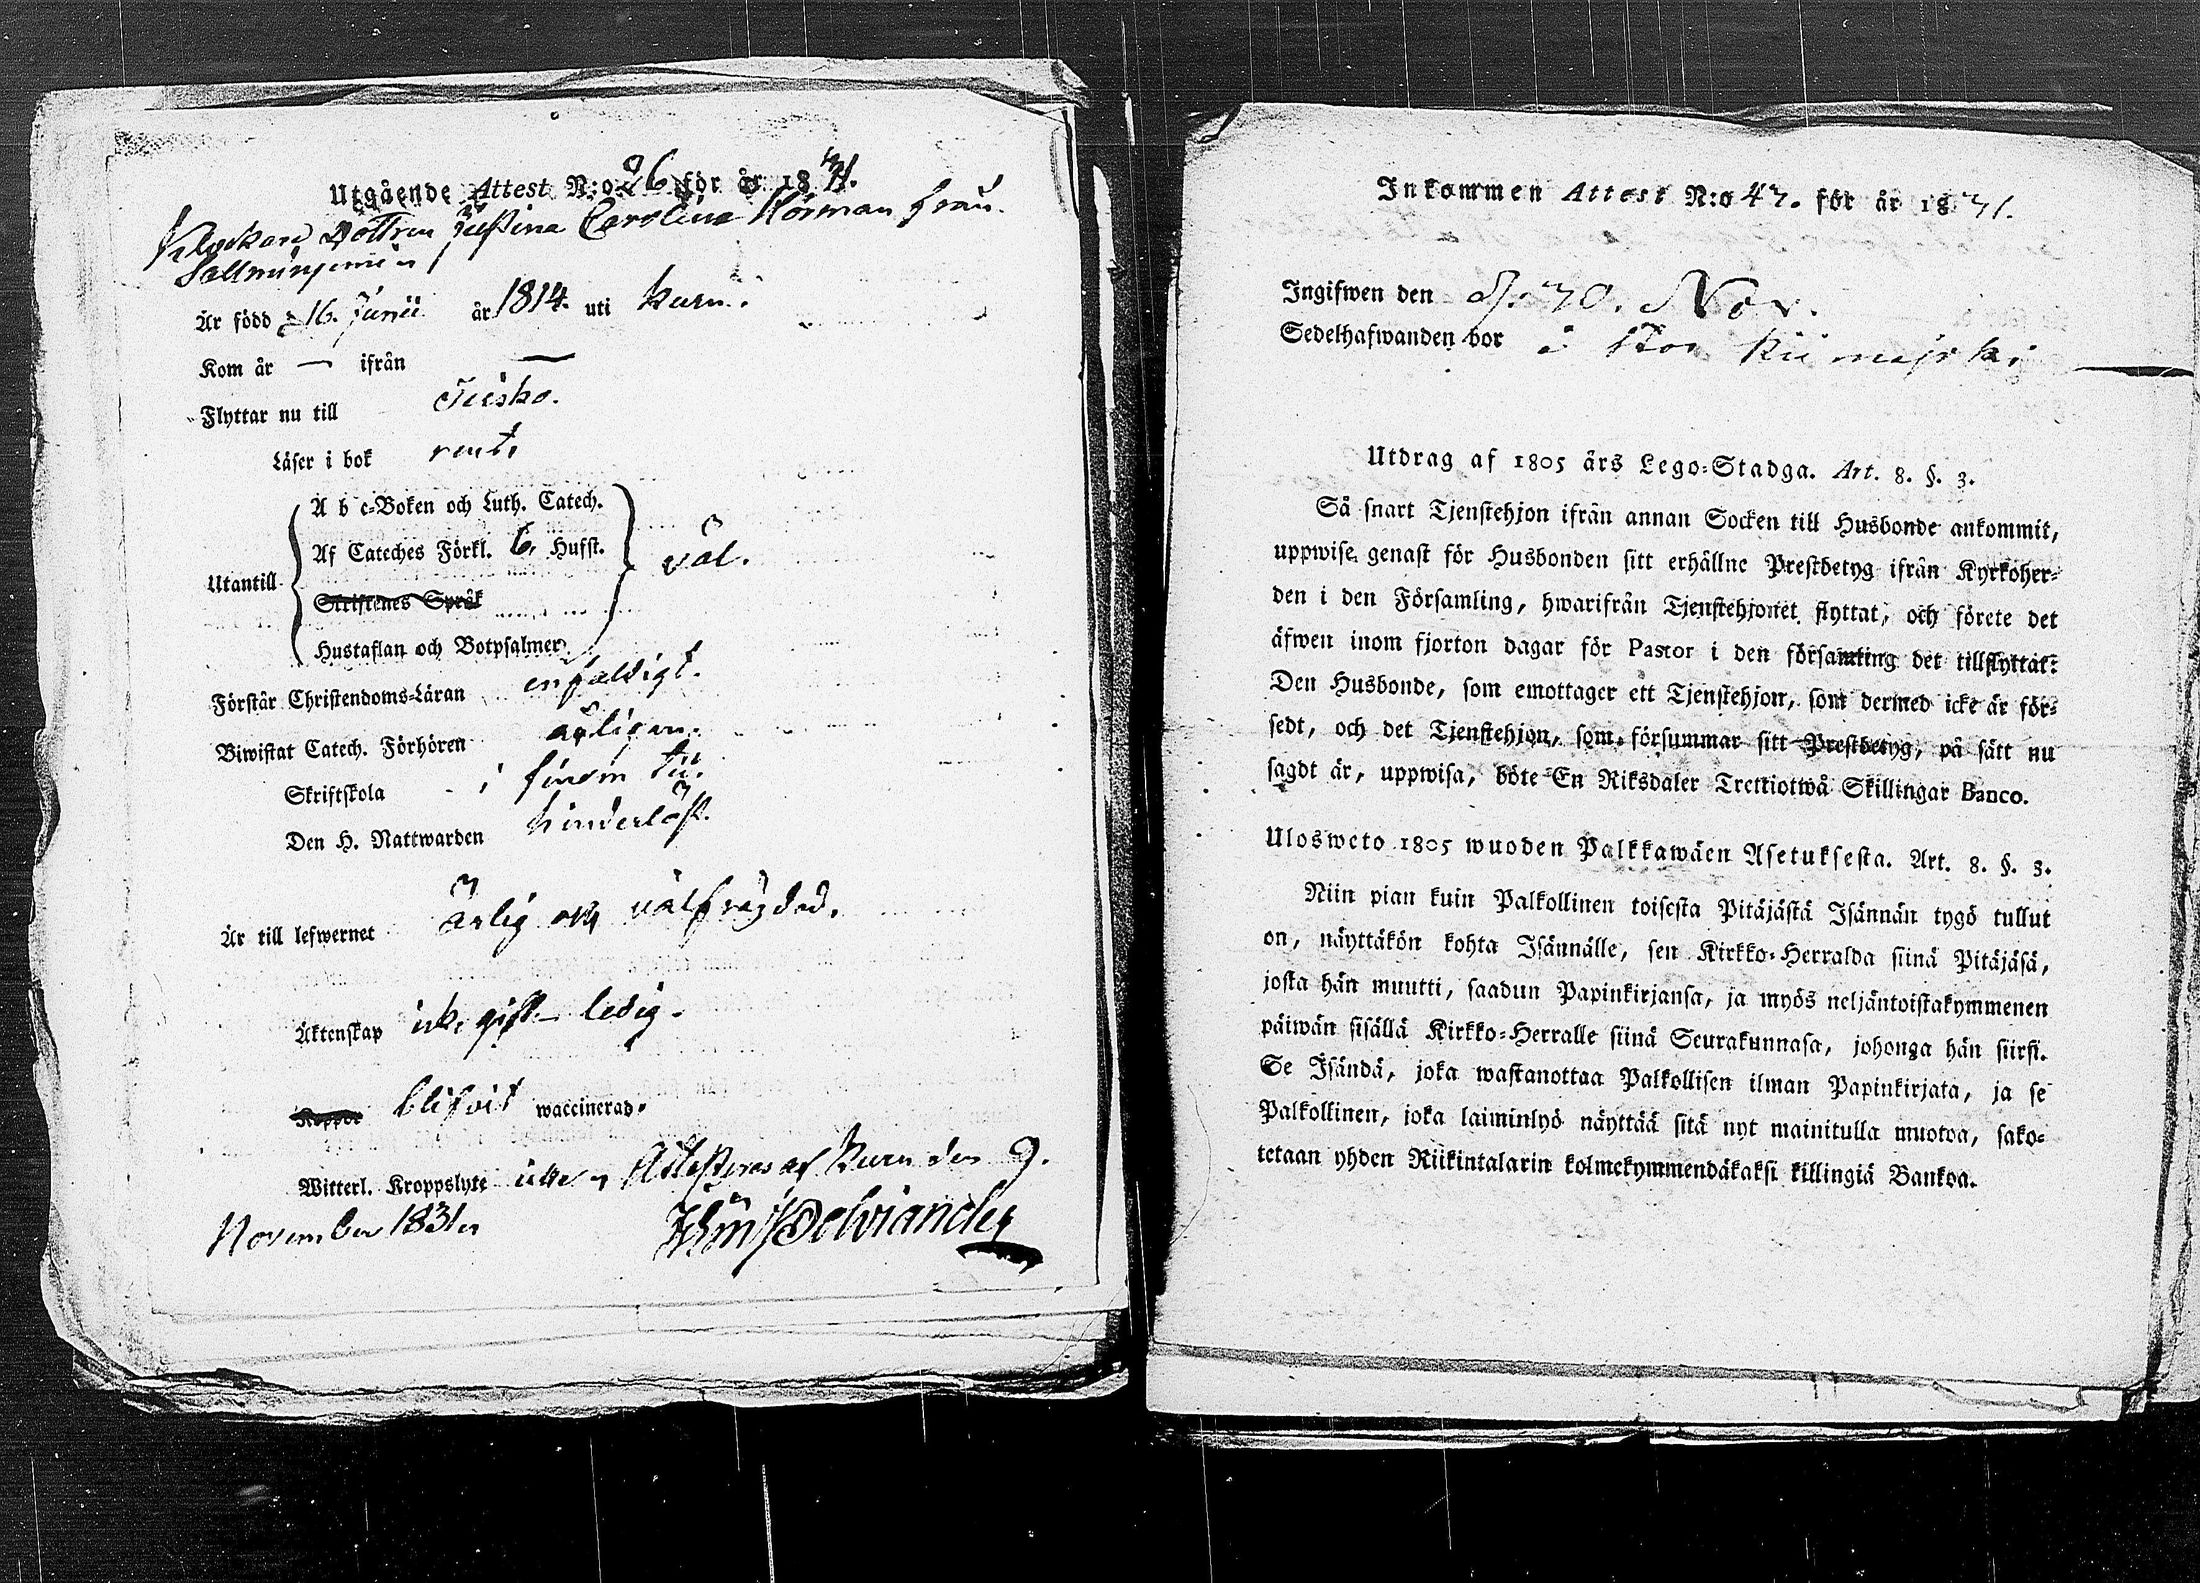 Utgående Attest N:o 26 för år 1831.
Klockare Dottren Justina Carolina Hörman från
Är född d. 16. Junii år 1814. uti Kuru.
Kom år — ifrån —
Flyttar nu till
Läser i bok rent.
Utantill
A b c-Boken och Luth. Catech.
Af Cateches Förkl. 6. Hufst.
Skriftenes Språk
Hustaflan och Botpsalmer
väl.
Förstår Christendoms-Läran enfaldigt.
Biwistat Catech. Förhören årligen.
Skriftskola i sinom tid.
Den H. Nattwarden hinderlöst.
Är till lefwernet ärlig och välfrägdad.
Äktenskap icke gift – ledig.
Koppor blifvit waccinerad.
Witterl. Kroppslyte icke Attesteras af Kuru den 9.
November 1831
Inkommen Attest N:o 43. för år 1831.
Ingifwen den d. 30. Nov.
Sedelhafwanden bor i
Utdrag af 1805 års Lego-Stadga. Art. 8. §. 3.
Så snart Tjenstehjon ifrån annan Socken till Husbonde ankommit,
uppwise genast för Husbonden sitt erhållne Prestbetyg ifrån Kyrkoher-
den i den Församling, hwarifrån Tjenstehjonet flyttat, och förete det
äfwen inom fjorton dagar för Pastor i den församling det tillflyttat:
Den Husbonde, som emottager ett Tjenstehjon, som dermed icke är för-
sedt, och det Tjenstehjon, som försummar sitt Prestbetyg, på sätt nu
sagdt är, uppwisa, böte En Riksdaler Trettiotwå Skillingar Banco.
Ulosweto 1805 wuoden Palkkawäen Asetuksesta. Art. 8. §. 3.
Niin pian kuin Palkollinen toisesta Pitäjästä Isännän tygö tullut
on, näyttäkön kohta Isännälle, sen Kirkko-Herralda siinä Pitäjäsä,
josta hän muutti, saadun Papinkirjansa, ja myös neljäntoistakymmenen
päiwän sisällä Kirkko-Herralle siinä Seurakunnasa, johonga hän siirsi.
Se Isändä, joka wastanottaa Palkollisen ilman Papinkirjata, ja se
Palkollinen, joka laiminlyö näyttää sitä nyt mainitulla muotoa, sako-
tetaan yhden Riikintalarin kolmekymmendäkaksi killingiä Bankoa.